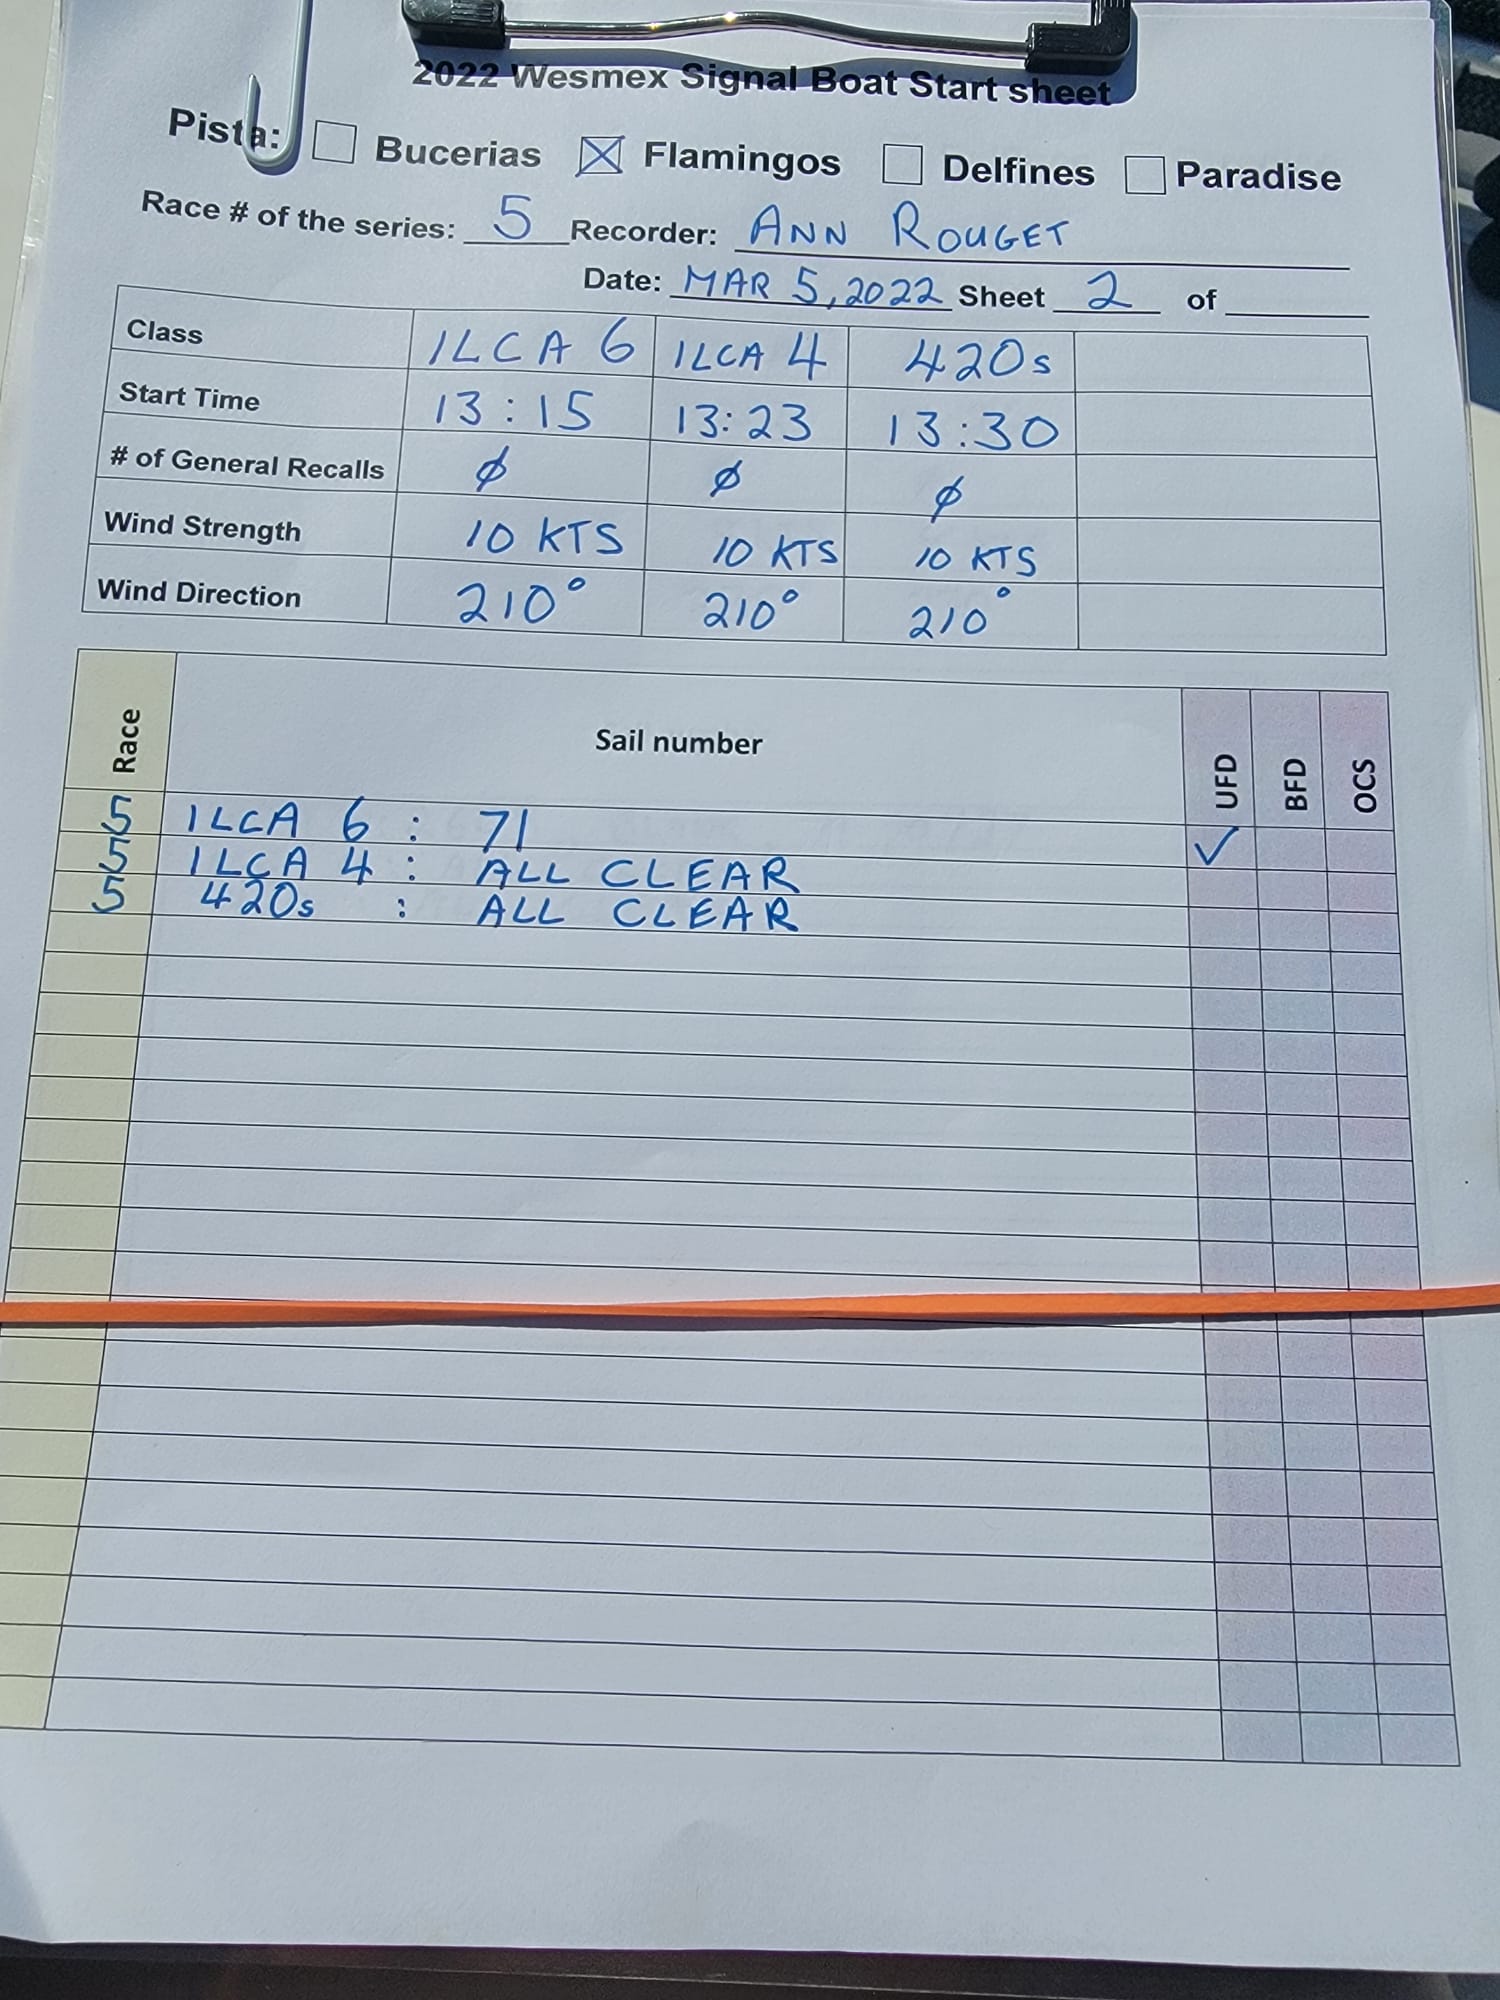 2022 Wesmex Signal Boat Start sheet
Pista: Bucerias Flamingos Delfines Paradise
Race # of the series: 5 Recorder: ANN ROUGET
Date: MAR 5, 2022 Sheet 2 of
Class ILCA 6 ILCA 4 420s
Start Time 13:15 13:23 13:30
# of General Recalls ϕ ϕ ϕ
Wind Strength 10 KTS 10 KTS 10 KTS
Wind Direction 210° 210° 210°
Race Sail number UFD BFD OCS
5 ILCA 6 : 71 ✓
5 ILCA 4 : ALL CLEAR
5 420s : ALL CLEAR